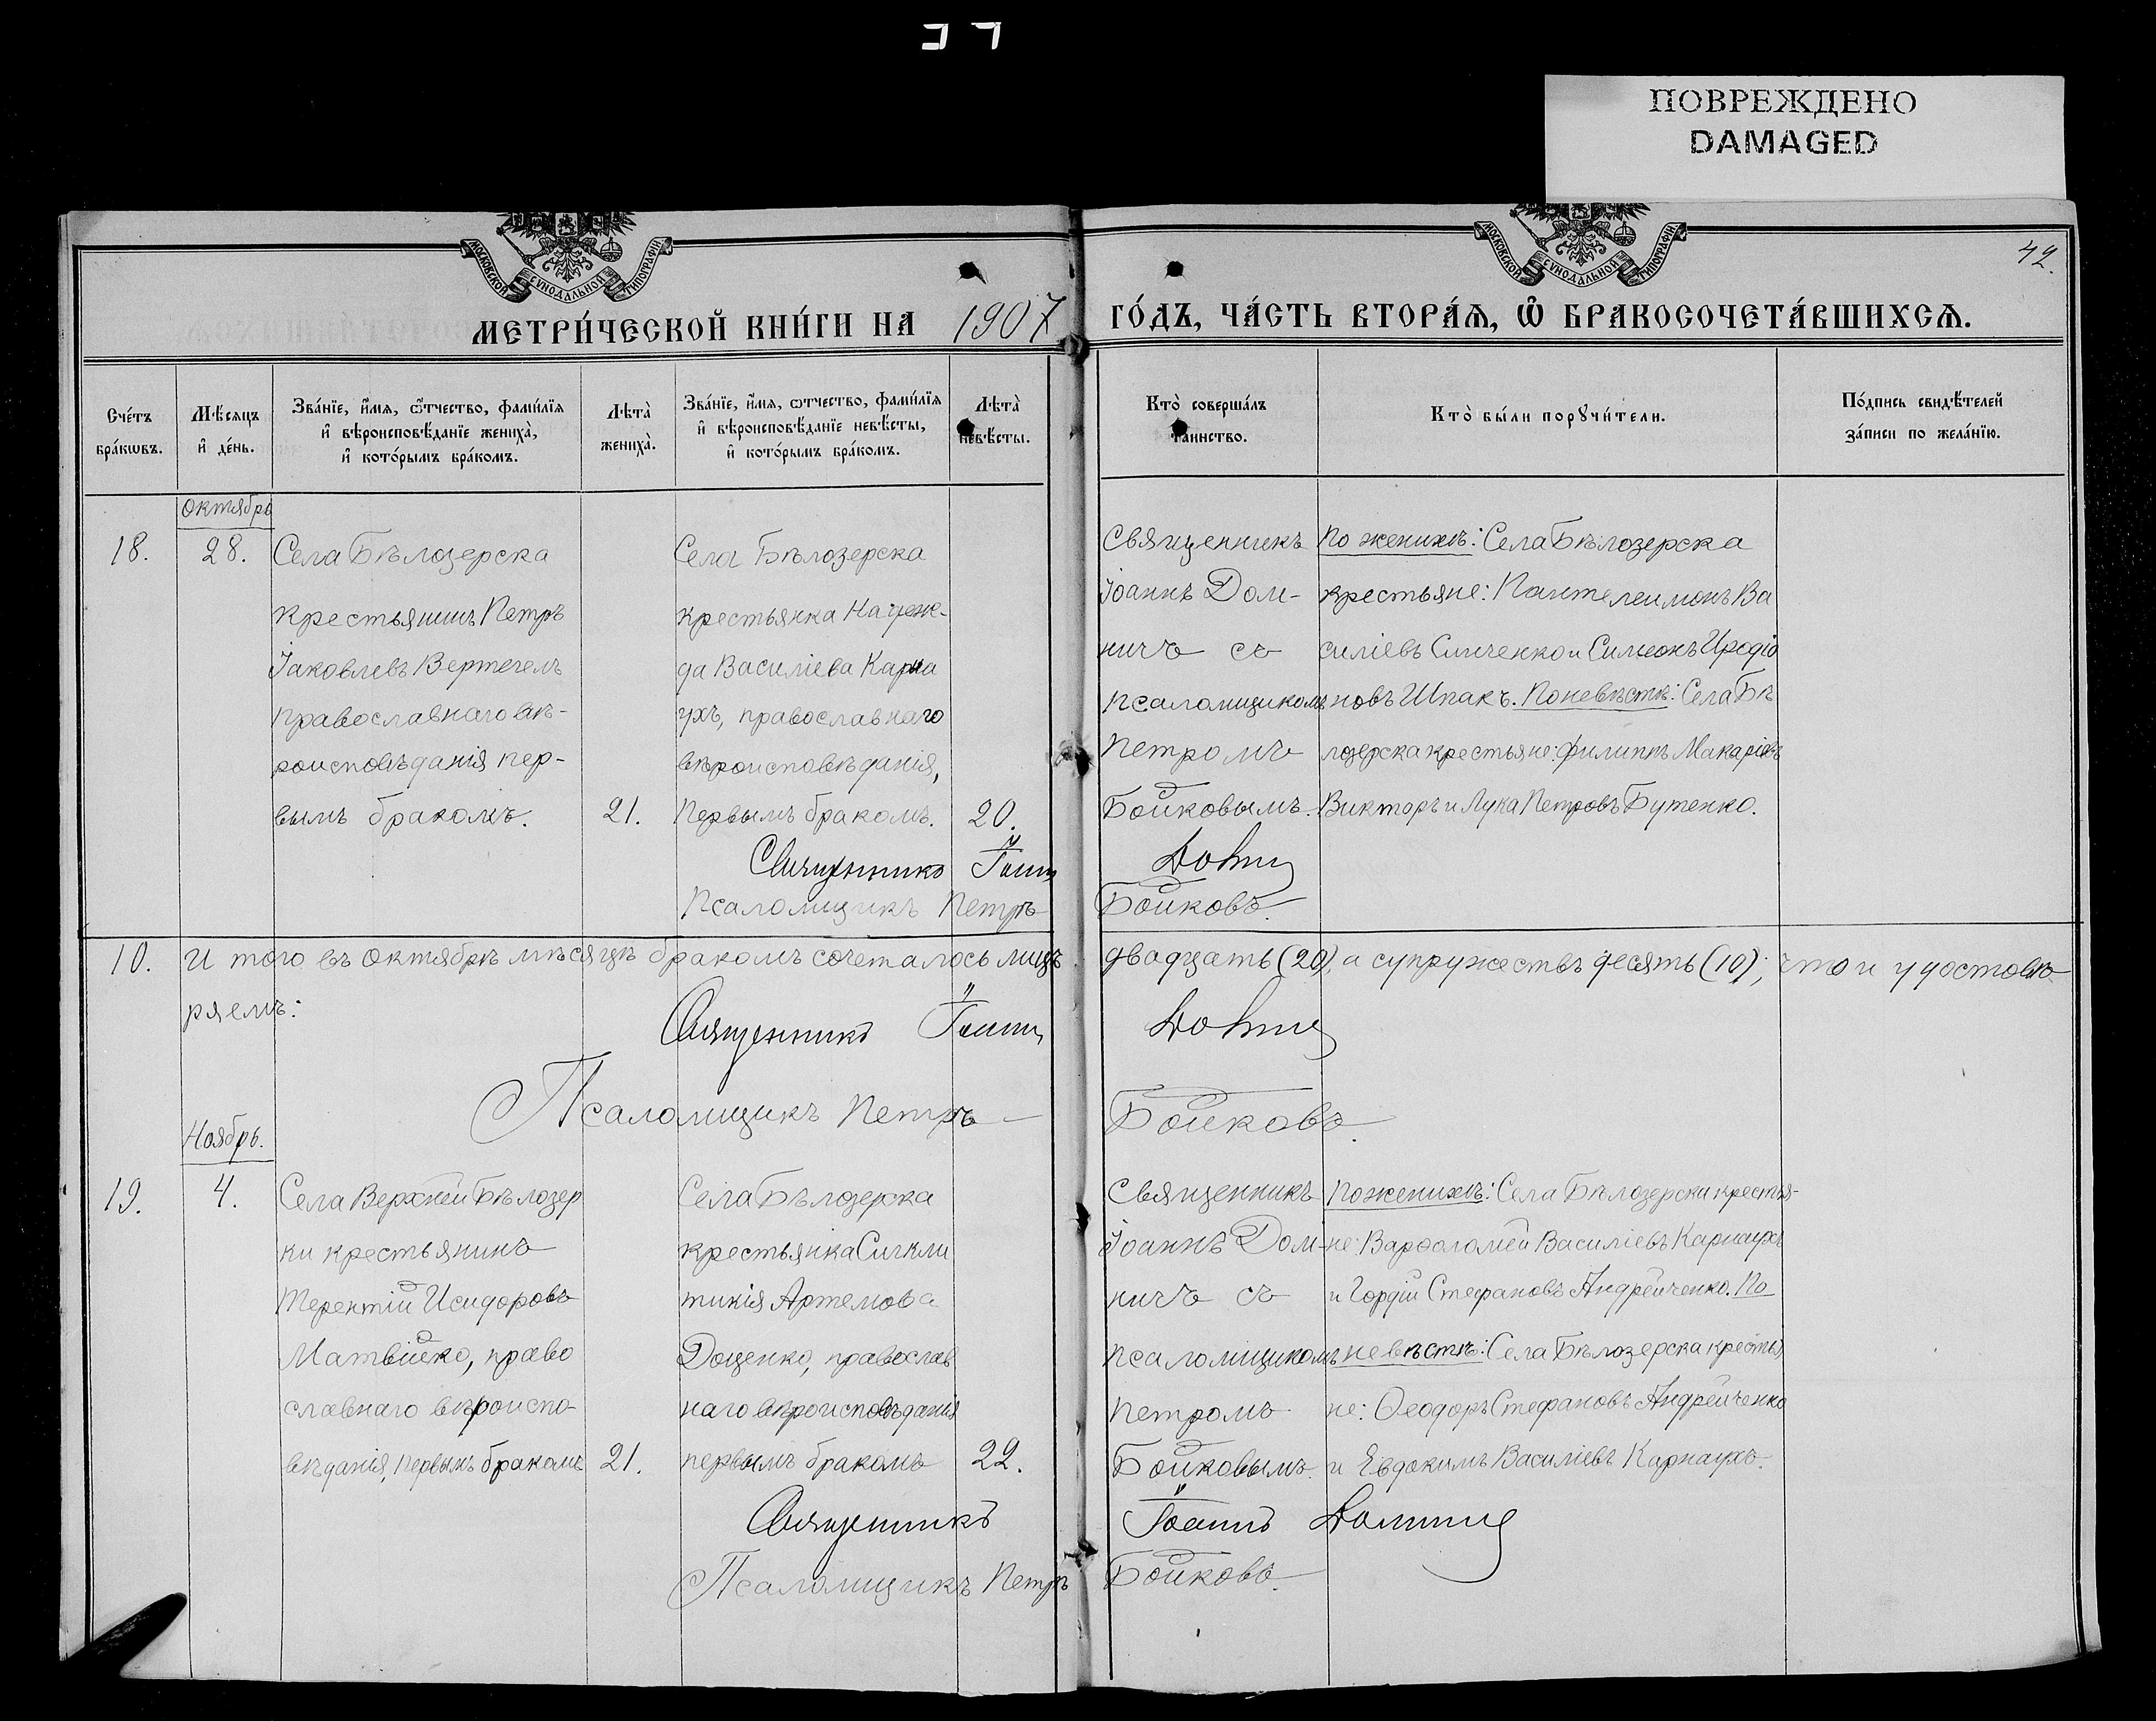 ПОВРЕЖДЕНО
DAMAGED
42.
МОСКОВСКОЙ СѴНОДАЛЬНОЙ ТИПОГРАФІИ
МОСКОВСКОЙ СѴНОДАЛЬНОЙ ТИПОГРАФІИ
МЕТРИ́ЧЕСКОЙ КНИ́ГИ НА 1907 ГО́ДЪ, ЧА́СТЬ ВТОРА́Ѧ, Ѽ БРАКОСОЧЕТА́ВШИХСѦ.
Сче́тъ
бра́кѡвъ.
Мѣ́сяцъ
и҆ де́нь.
Зва́нїе, и҆́мѧ, ѻ҆́тчество, фами́лїѧ
и҆ вѣроисповѣ́данїе жениха̀,
и҆ кото́рымъ бра́комъ.
Лѣта̀
жениха̀.
Зва́нїе, и҆́мѧ, ѻтчество, фами́лїѧ
и҆ вѣроисповѣ́данїе невѣ́сты,
и҆ кото́рымъ бра́комъ.
Лѣта̀
невѣ́сты.
Кто̀ соверша́лъ
таинство.
Кто̀ бы́ли порꙋчи́тели.
По́дпись свидѣ́телей
за́писи по жела́нїю.
Октябрь
18.
28.
Села Бѣлозерска
крестьянинъ Петръ
Іаковлевъ Вертегелъ
православнаго вѣ-
роисповѣданія пер-
вымъ бракомъ.
21.
Села Бѣлозерска
крестьянка Надеж-
да Василіева Карна
ухъ, православнаго
вѣроисповѣданія,
первымъ бракомъ.
20.
Священникъ
Іоаннъ Дом-
ничъ съ
псаломщикомъ
Петромъ
Бойковымъ.
По женихѣ: Села Бѣлозерска
крестьяне: Пантелеимонъ Ва
силіевъ Синченко и Симеонъ Иродіо
новъ Шпакъ. По невѣстѣ: Села Бѣ
лозерска крестьяне: Филиппъ Макаріевъ
Викторъ и Лука Петровъ Бутенко.
Священникъ Іоаннъ Домничъ
Псаломщикъ Петръ Бойковъ.
10. И того въ Октябрѣ мѣсяцѣ бракомъ сочеталось лицъ двадцать (20), а супружествъ десять (10); что и удостовѣ-
ряемъ:
Священникъ Іоаннъ Домничъ
Псаломщикъ Петръ Бойковъ.
Ноябрь.
19.
4.
Села Верхней Бѣлозер
ки крестьянинъ
Терентій Исидоровъ
Матвійко, право
славнаго вѣроиспо-
вѣданія, первымъ бракомъ
21.
Села Бѣлозерска
крестьянка Сигкли
тикія Артемова
Доценко, православ
наго вѣроисповѣданія
первымъ бракомъ
22.
Священникъ
Іоаннъ Дом-
ничъ съ
псаломщикомъ
Петромъ
Бойковымъ.
По женихѣ: Села Бѣлозерски крестья-
не: Варѳоломей Василіевъ Карнаухъ
и Гордій Стефановъ Андрейченко. По
невѣстѣ: Села Бѣлозерска крестья
не: Ѳеодоръ Стефановъ Андрейченко
и Евдокимъ Василіевъ Карнаухъ.
Священникъ Іоаннъ Домничъ
Псаломщикъ Петръ Бойковъ.